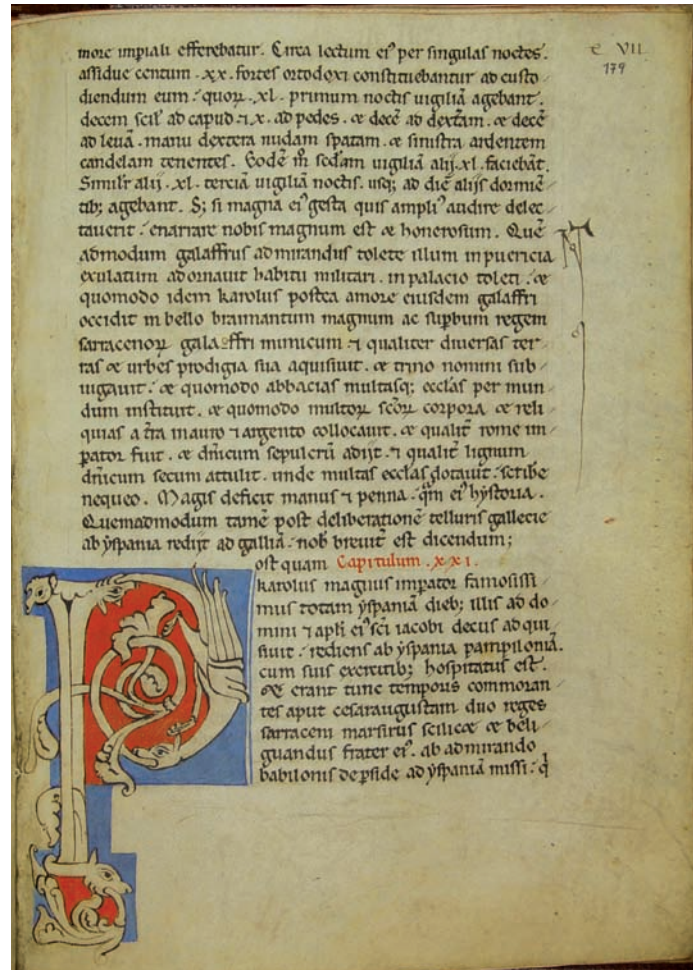 more imp̄iali efferebatur. Circa lectum ei᷒ per singulas noctes.
assidue centum .xx. fortes ortodoxi constituebantur ad custo
diendum eum: quoꝝ .xl. primum noctis uigiliā agebant.
decem scil᷒ ad capud ⁊ .x. ad pedes. & decē ad dext̄am. & decē
ad leuā. manu dextera nudam spatam. & sinistra ardentem
candelam tenentes. Eodē m̊ sc̄dam uigiliā alij .xl. faciebāt.
Similr̄ alij .xl. terciā uigiliā noctis. usq; ad diē alijs dormiē
tib; agebant. S; si magna ei᷒ gesta quis ampli᷒ audire delec
tauerit: enarrare nobis magnum est & honerosum. Quē
admodum galaffrus admirandus tolete illum in puericia
exulatum adornauit habitu militari. in palacio toleti: &
quomodo idem karolus postea amore eiusdem galaffri
occidit in bello braimantum magnum ac sup̄bum regem
sarracenoꝝ galaffri inimicum ⁊ qualiter diuersas ter
ras & urbes prodigia sua aquisiuit. & trino nomini sub
iugauit: & quomodo abbacias multasq; eccl̄as per mun
dum instituit. & quomodo multoꝝ sc̄oꝝ corpora & reli
quias a t̄ra in auro ⁊ argento collocauit. & qualit̄ rome im
p̄ator fuit. & dn̄icum sepulcrū adijt. ⁊ qualit̄ lignum
dn̄icum secum attulit. unde multas eccl̄as dotauit: scribe
nequeo. Magis deficit manus ⁊ penna. qm̄ ei᷒ hystoria.
Quemadmodum tamē post deliberationē telluris gallecie
ab yspania redijt ad galliā: nob̄ breuit̄ est dicendum;
e VII
179
Post quam Capitulum .xxi.
karolus magnus imp̄ator famosissi
mus totam yspaniā dieb; illis ad do
mini ⁊ apl̄i ei᷒ sc̄i iacobi decus adqui
siuit: rediens ab yspania pampiloniā.
cum suis exercitib; hospitatus est.
& erant tunc temporis commoran
tes aput cesaraugustam duo reges
sarraceni marsirus scilic& & beli
guandus frater ei᷒. ab admirando
babilonis de p̄side ad yspaniā missi: q̇